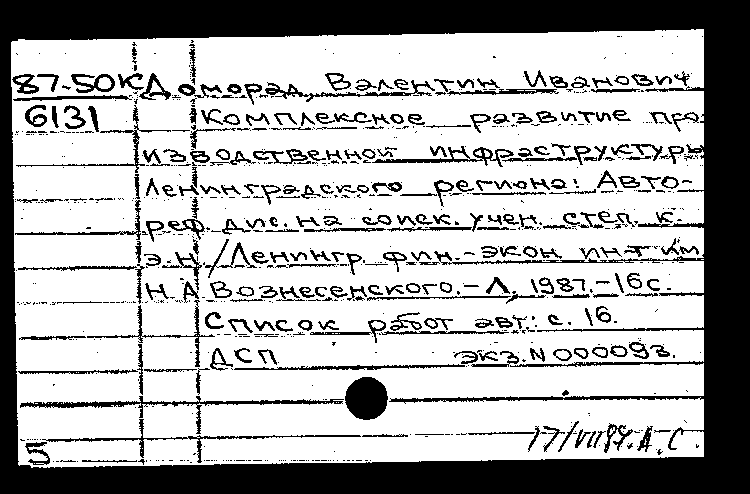 87-50К Доморад, Валентин Иванович
6131 Комплексное развитие про-
изводственной инфраструктуры
Ленинградского региона: Авто-
реф. дис. на соиск. учен. степ. к.
э.н. / Ленингр. фин.-экон. ин-т им.
Н А Вознесенского. - Л., 1987. - 16 с.
Список работ авт.: с. 16.
ДСП экз. N 000093.
17/VII 87. А. С.
5